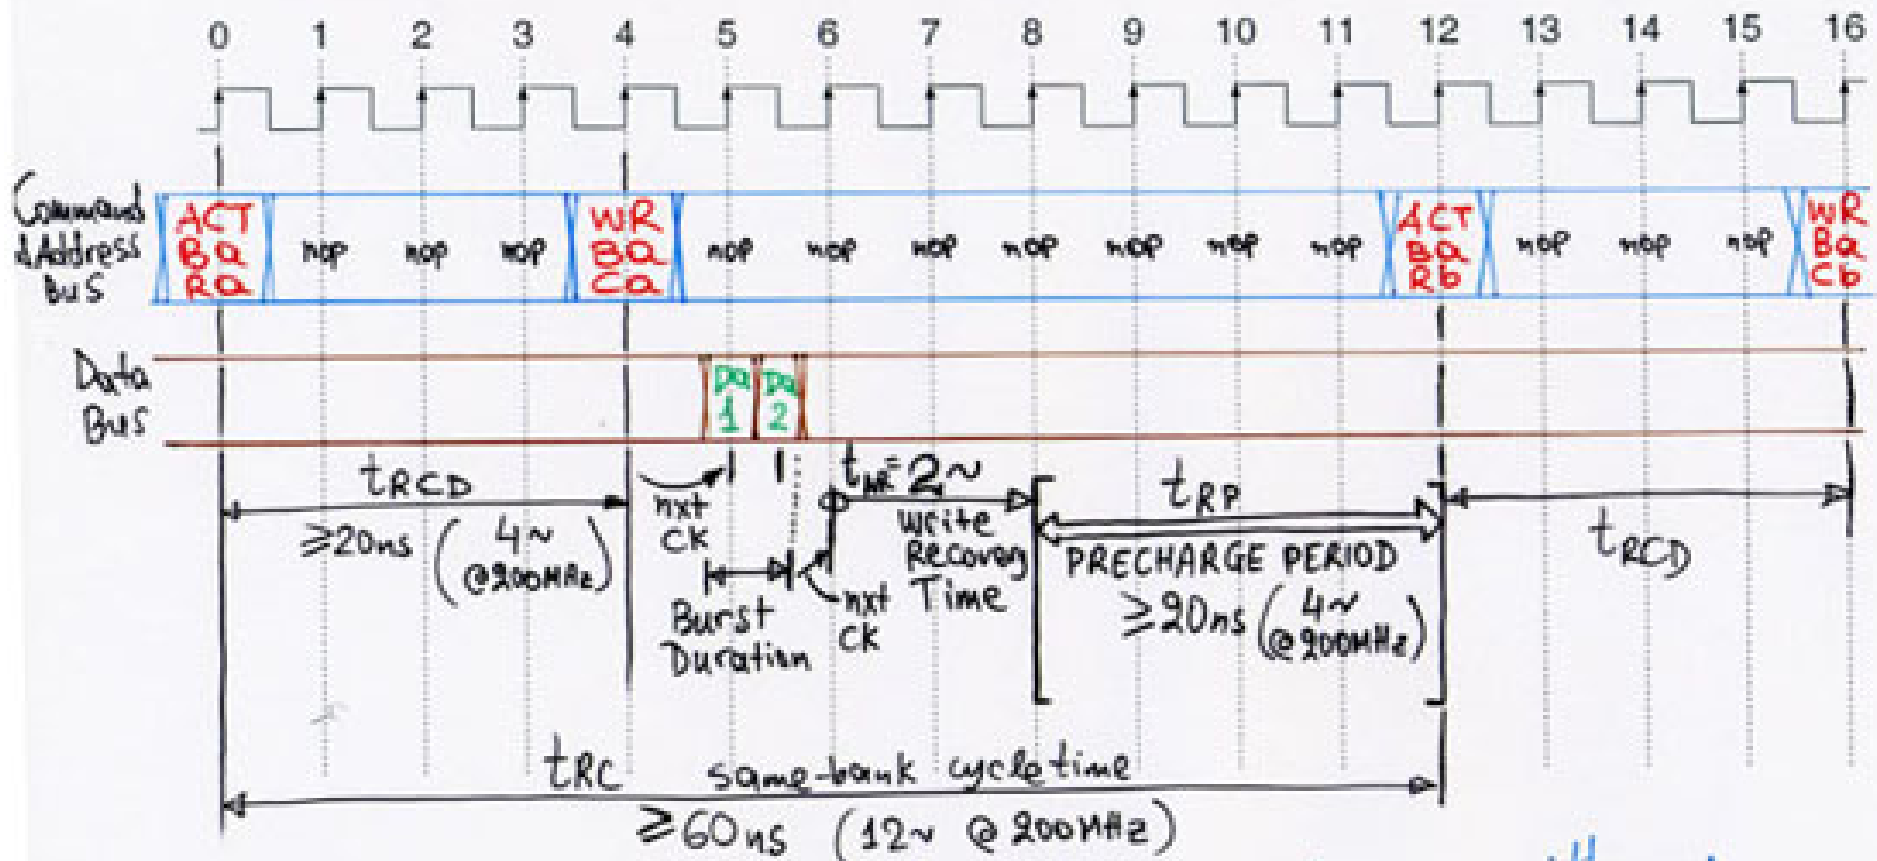 0 1 2 3 4 5 6 7 8 9 10 11 12 13 14 15 16
Command
& Address
Bus
ACT
Ba
Ra
nop nop nop
WR
Ba
Ca
nop nop nop nop nop nop nop
ACT
Ba
Rb
nop nop nop
WR
Ba
Cb
Data
Bus
Da
1
Da
2
tRCD
≥20ns (4~
@200MHz)
nxt
CK
Burst
Duration
nxt
CK
tWR=2~
Write
Recovery
Time
tRP
PRECHARGE PERIOD
≥20ns (4~
@200MHz)
tRCD
tRC same-bank cycle time
≥60ns (12~ @ 200MHz)